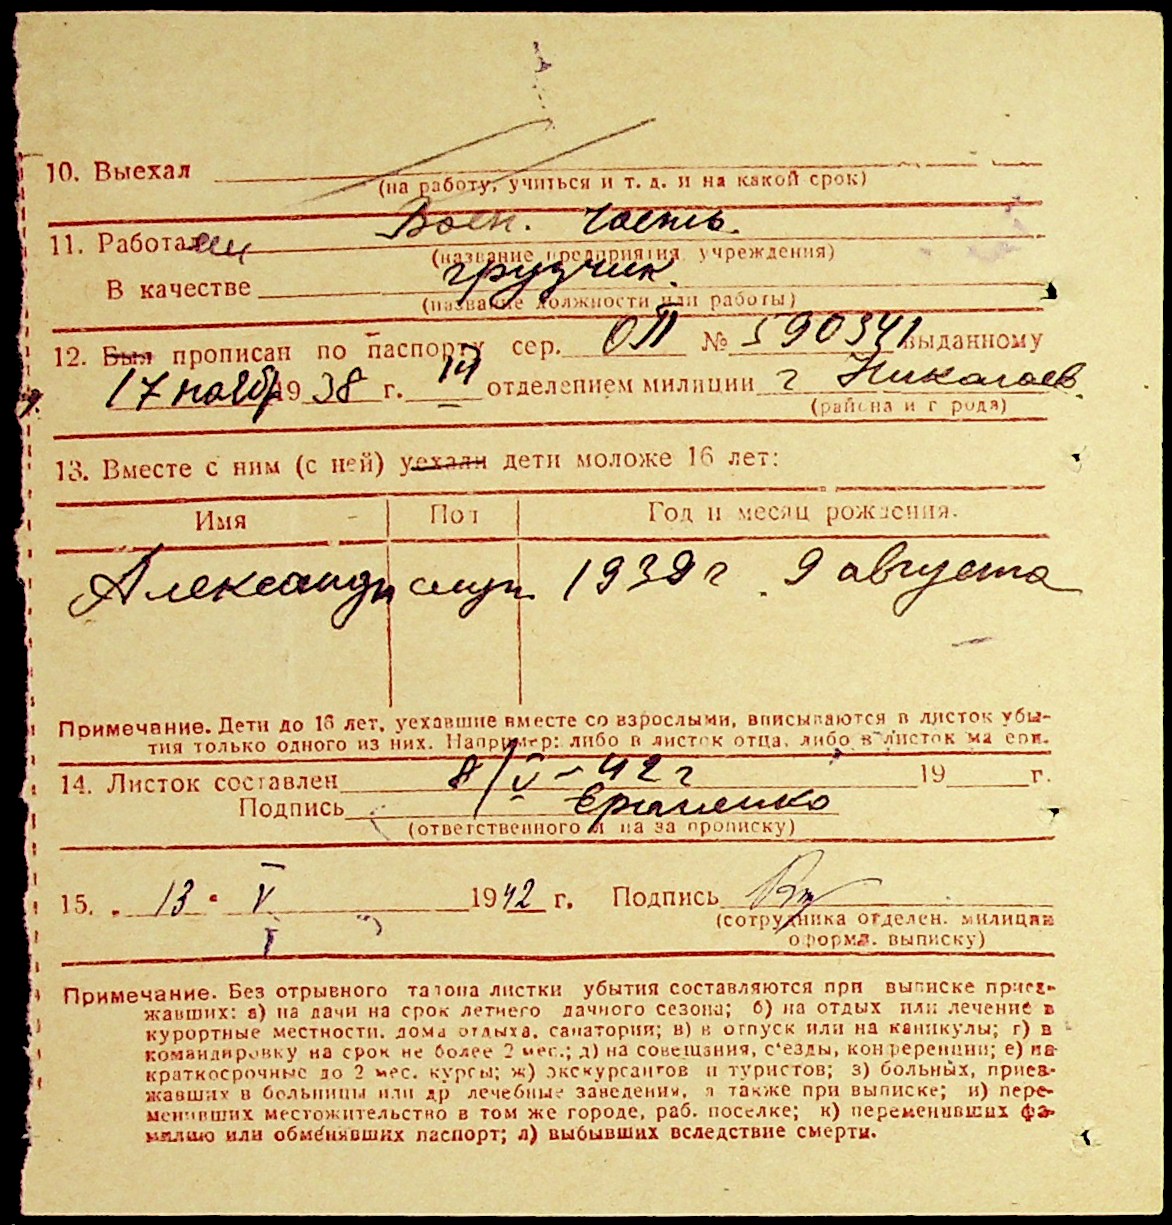 10. Выехал
(на работу, учиться и т. д. и на какой срок)
Воен. часть.
11. Работа
(название предприятия, учреждения)
грузчик.
В качестве
(название должности или работы)
12. Был прописан по паспорту сер. ОП № 590341 выданному
17 нояб 1938 г. III отделением милиции г Николаев
(района и города)
13. Вместе с ним (с ней) уехали дети моложе 16 лет:
Имя Пол Год и месяц рождения.
Александр муж. 1939 г. 9 августа
Примечание. Дети до 16 лет, уехавшие вместе со взрослыми, вписываются в листок убы-
тия только одного из них. Например: либо в листок отца, либо в листок матери.
14. Листок составлен 8/V-42 г 19 г.
Подпись Еременко
(ответственного лица за прописку)
15. 13 V 1942 г. Подпись
(сотрудника отделен. милиции
оформл. выписку)
Примечание. Без отрывного талона листки убытия составляются при выписке приез-
жавших: а) на дачи на срок летнего дачного сезона; б) на отдых или лечение в
курортные местности, дома отдыха, санатории; в) в отпуск или на каникулы; г) в
командировку на срок не более 2 мес.; д) на совещания, с'езды, конференции; е) на
краткосрочные до 2 мес. курсы; ж) экскурсантов и туристов; з) больных, приез-
жавших в больницы или др лечебные заведения, а также при выписке; и) пере-
менивших местожительство в том же городе, раб. поселке; к) переменивших фа-
милию или обменявших паспорт; л) выбывших вследствие смерти.